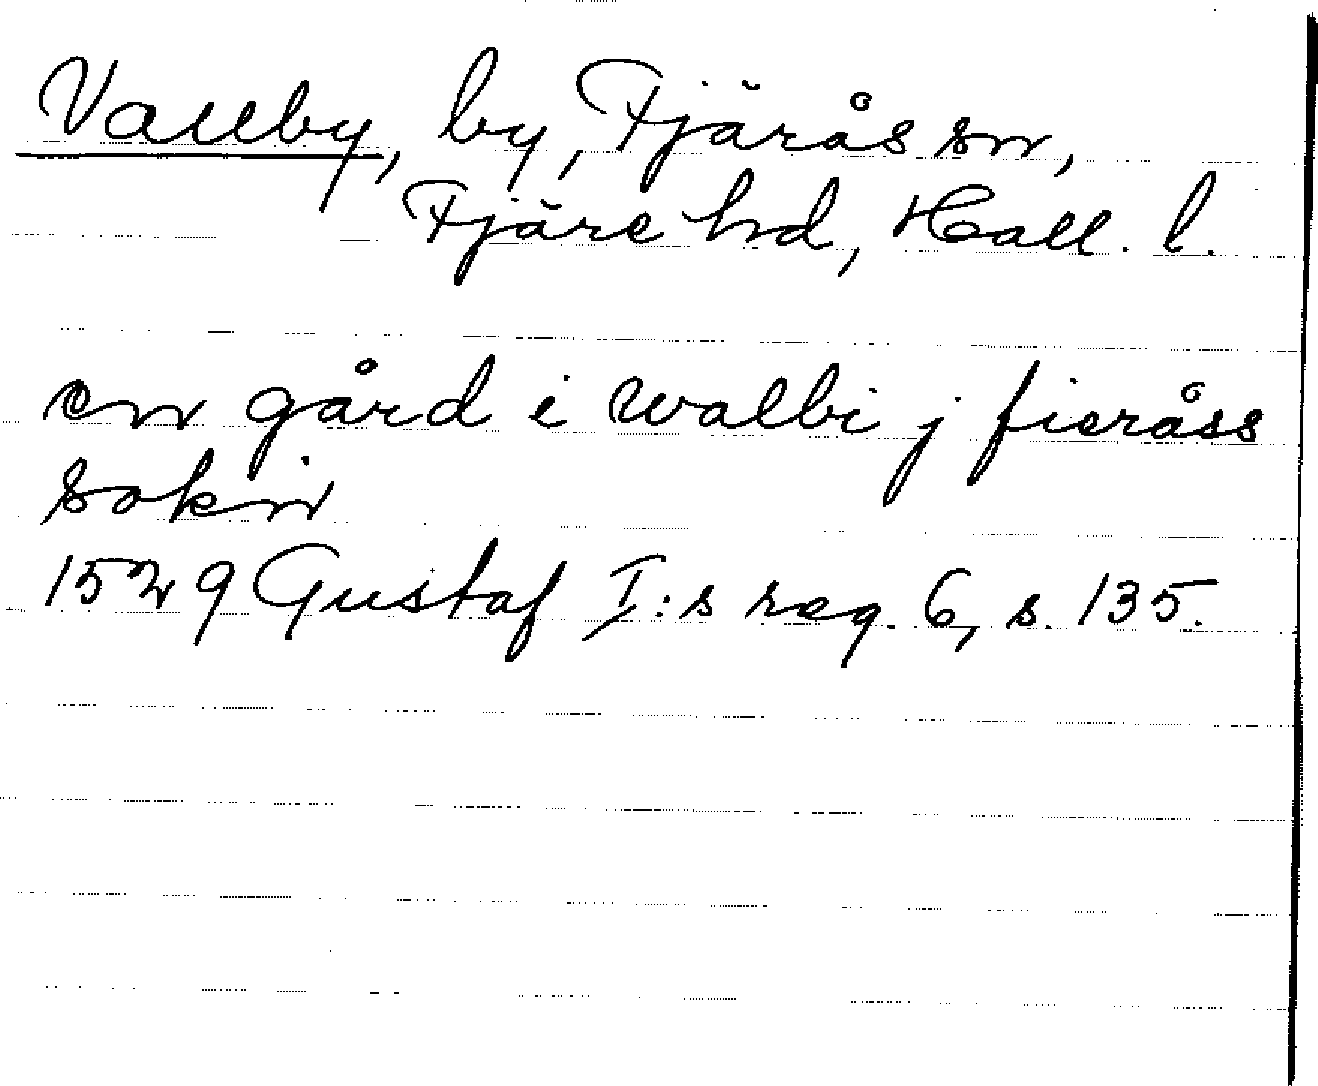 Vallby, by, Fjärås sn,
Fjäre hd, Hall. l.
en gård i walbi j fieråss
sokn
1529 Gustaf I:s reg. 6, s. 135.